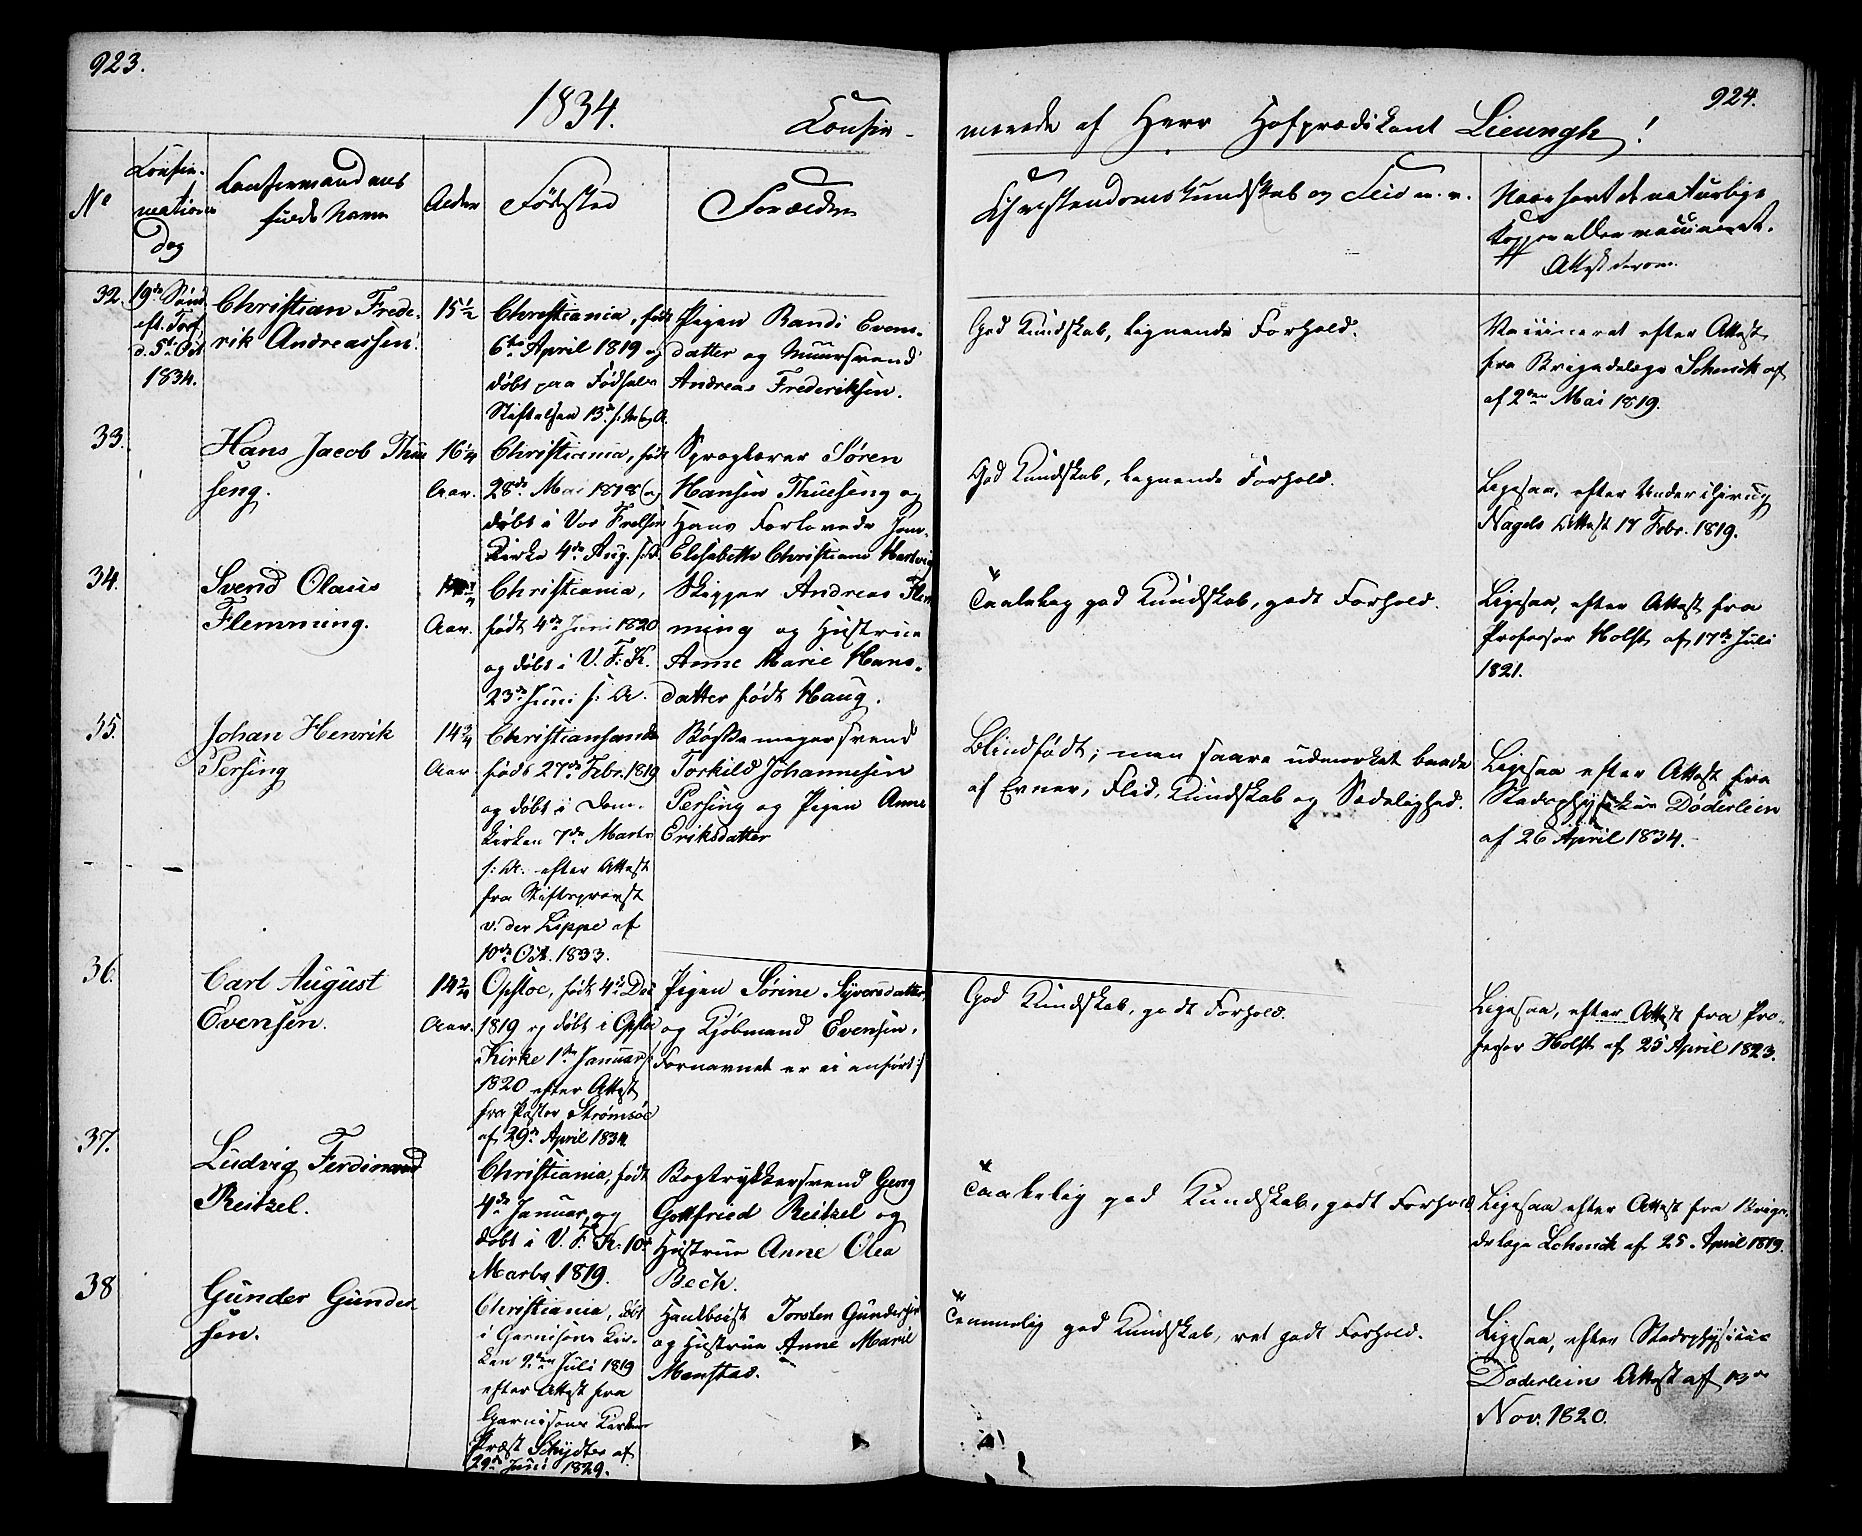 923.
924.
1834.
Confir-
merede af Herr Hofprædikant Lieungh!
No
Confir-
mations
dag
Confirmandens
fulde Navn
Alder
Fødsted
Forældre
Christendomskundskab og Flid m. v.
Naar havt de naturlige
Kopper eller vaccineret.
Attest derom.
32.
19de Sønd.
eft. Tref.
d. 5te Oct
1834.
Christian Frede-
rik Andreassen.
15 1/2
Christiania, født
6te April 1819 og
døbt paa Fødsels
Stiftelsen 13de s: M. og A.
Pigen Randi Evens-
datter og Muursvend
Andreas Frederiksen.
God Kundskab, lignende Forhold.
Vaccineret efter Attest
fra Brigadelæge Schenck af
af 2den Mai 1819.
33.
Hans Jacob Thue
seng.
16 1/4
Aar.
Christiania, født
28de Mai 1818 og
døbt i Vor Frelsers
Kirke 4de Aug. s: A.
Sproglærer Søren
Hansen Thueseng og
Hans Forlovede Jom.
Elisabeth Christiane Hartvig
God Kundskab, lignende Forhold.
Ligesaa, efter Underchirurg
Nagels Attest 17 Febr. 1819.
34.
Svend Olaus
Flemming.
Aar.
Christiania,
født 4de Juni 1820
og døbt i V. F. K.
23de Juni s: A.
Skipper Andreas Flem
ming og Hustrue
Anne Marie Hans-
datter født Haug.
Taalelig god Kundskab, godt Forhold.
Ligesaa, efter Attest fra
Professor Holst af 17de Juli
1821.
35.
Johan Henrik
Persing
14 3/4
Aar.
Christiansand
født 27de Febr. 1819
og døbt i Dom-
kirken 7de Marts
s: A. efter Attest
fra Stiftsprovst
v: der Lippe af
10de Oct. 1833.
Bøssemagersvend
Torkild Johannesen
Persing og Pigen Anne
Eriksdatter
Blindfødt; men saare udmærket baade
af Evner, Flid, Kundskab og Sædelighed.
Ligesaa efter Attest fra
Stadsphysikus Døderlein
af 26 April 1834.
36.
Carl August
Evensen.
14 2/4
Aar.
Opsloe, født 4de Dec
1819 og døbt i Opslo
Kirke 1ste Januar
1820 efter Attest
fra Pastor Strømsøe
af 29de April 1834
Pigen Sørine Syversdatter
og Kjøbmand Evensen,
/: Fornavnet er ei anført :/
God Kundskab, godt Forhold.
Ligesaa, efter Attest fra Pro-
fessor Holst af 25 April 1823.
37.
Ludvig Ferdinand
Reitzel.
Christiania, født
4de Januar, og
døbt i V. F. K. 10de
Marts 1819.
Bogtrykkersvend Georg
Gottfried Reitzel og
Hustrue Anne Olea
Bech.
Taalelig god Kundskab, godt Forhold
Ligesaa efter Attest fra Briga-
delæge Schenck af 25. April 1819.
38
Gunder Gunder
sen.
Christiania, døbt
i Garnisons Kir-
ken 9den Juli 1819
efter Attest fra
Garnisons Kirkens
Præst Schydter af
29de Juni 1829.
Hautboist Torsten Gundersen
og Hustrue Anne Marie
Monstad.
Temmelig god Kundskab, ret godt Forhold.
Ligesaa, efter Stadsphysicus
Døderleins Attest af 13de
Nov. 1820.